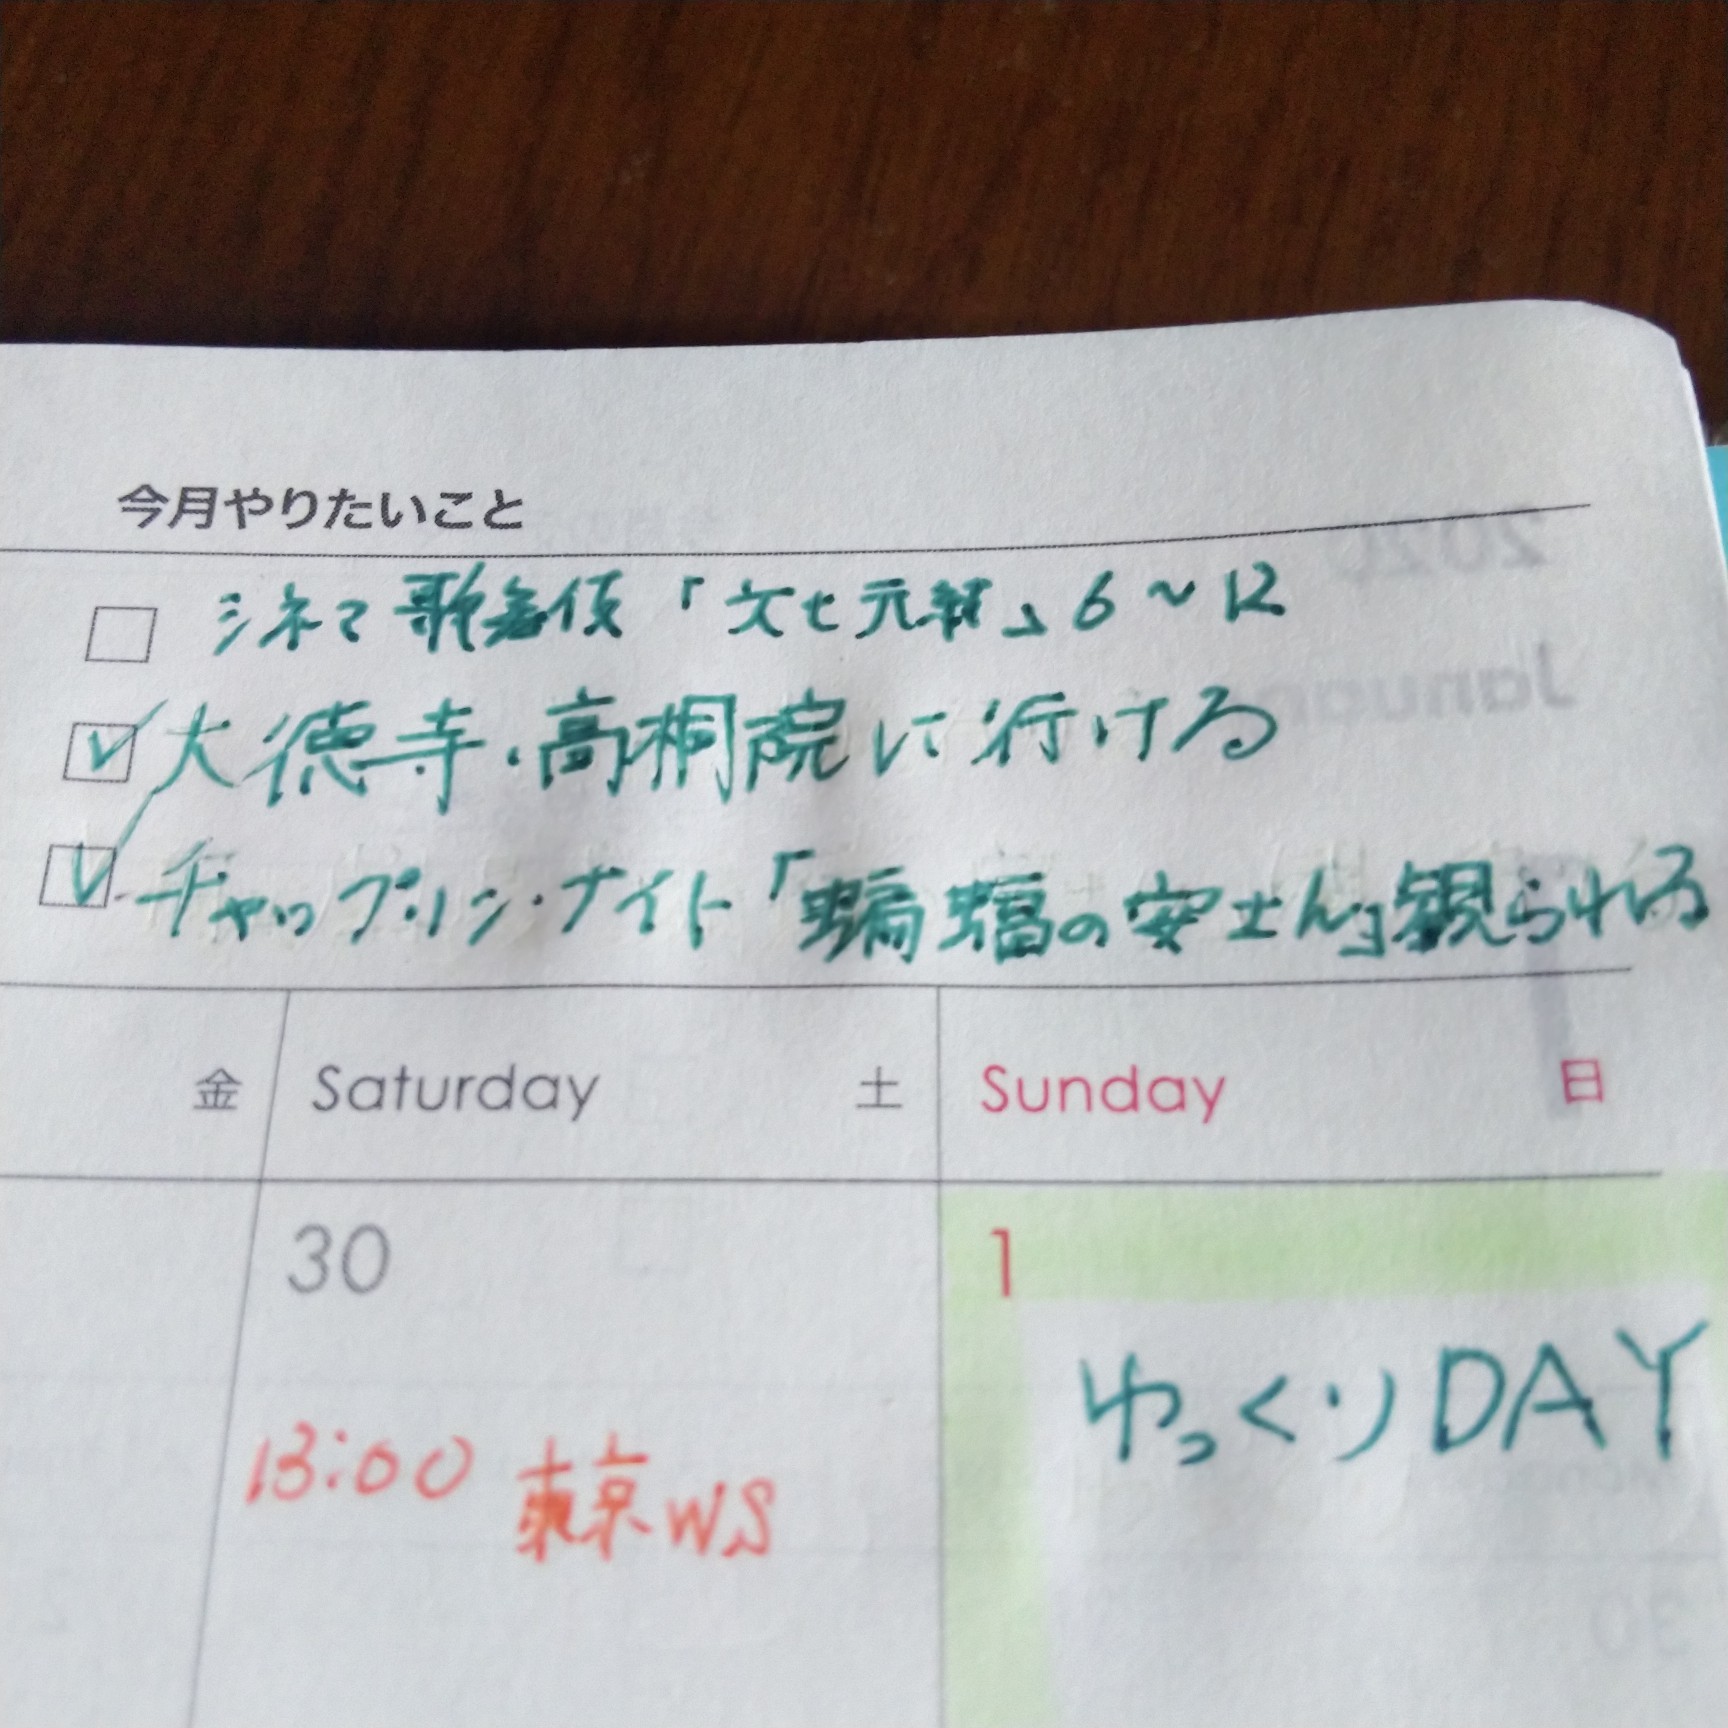 今月やりたいこと
シネマ歌舞伎「文七元結」6〜12
大徳寺・高桐院に行ける
チャップリン・ナイト「蝙蝠の安さん」観られる
金 Saturday 土 Sunday 日
30 1
13:00 東京WS ゆっくりDAY